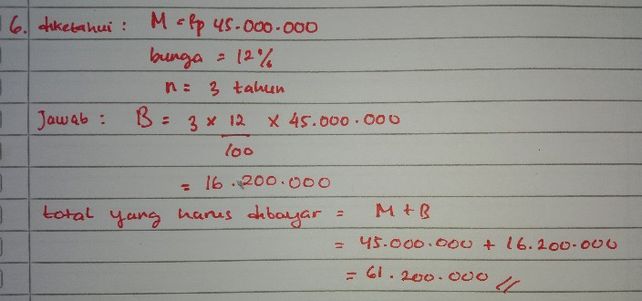 6. diketahui : M = Rp 45.000.000
bunga = 12%
n = 3 tahun
Jawab : B = 3 x 12 x 45.000.000
100
= 16.200.000
total yang harus dibayar = M + B
= 45.000.000 + 16.200.000
= 61.200.000 //